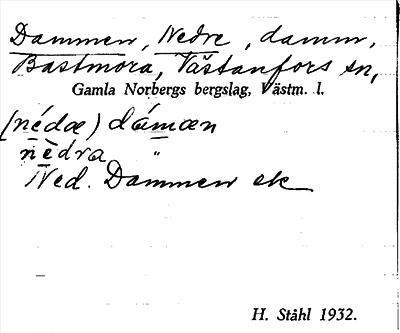 Dammen, Nedre, damm,
Bastmora, Västanfors sn,
Gamla Norbergs bergslag, Västm. l.
(nédæ) dámæn
nèdra "
Ned. Dammen ek
H. Ståhl 1932.